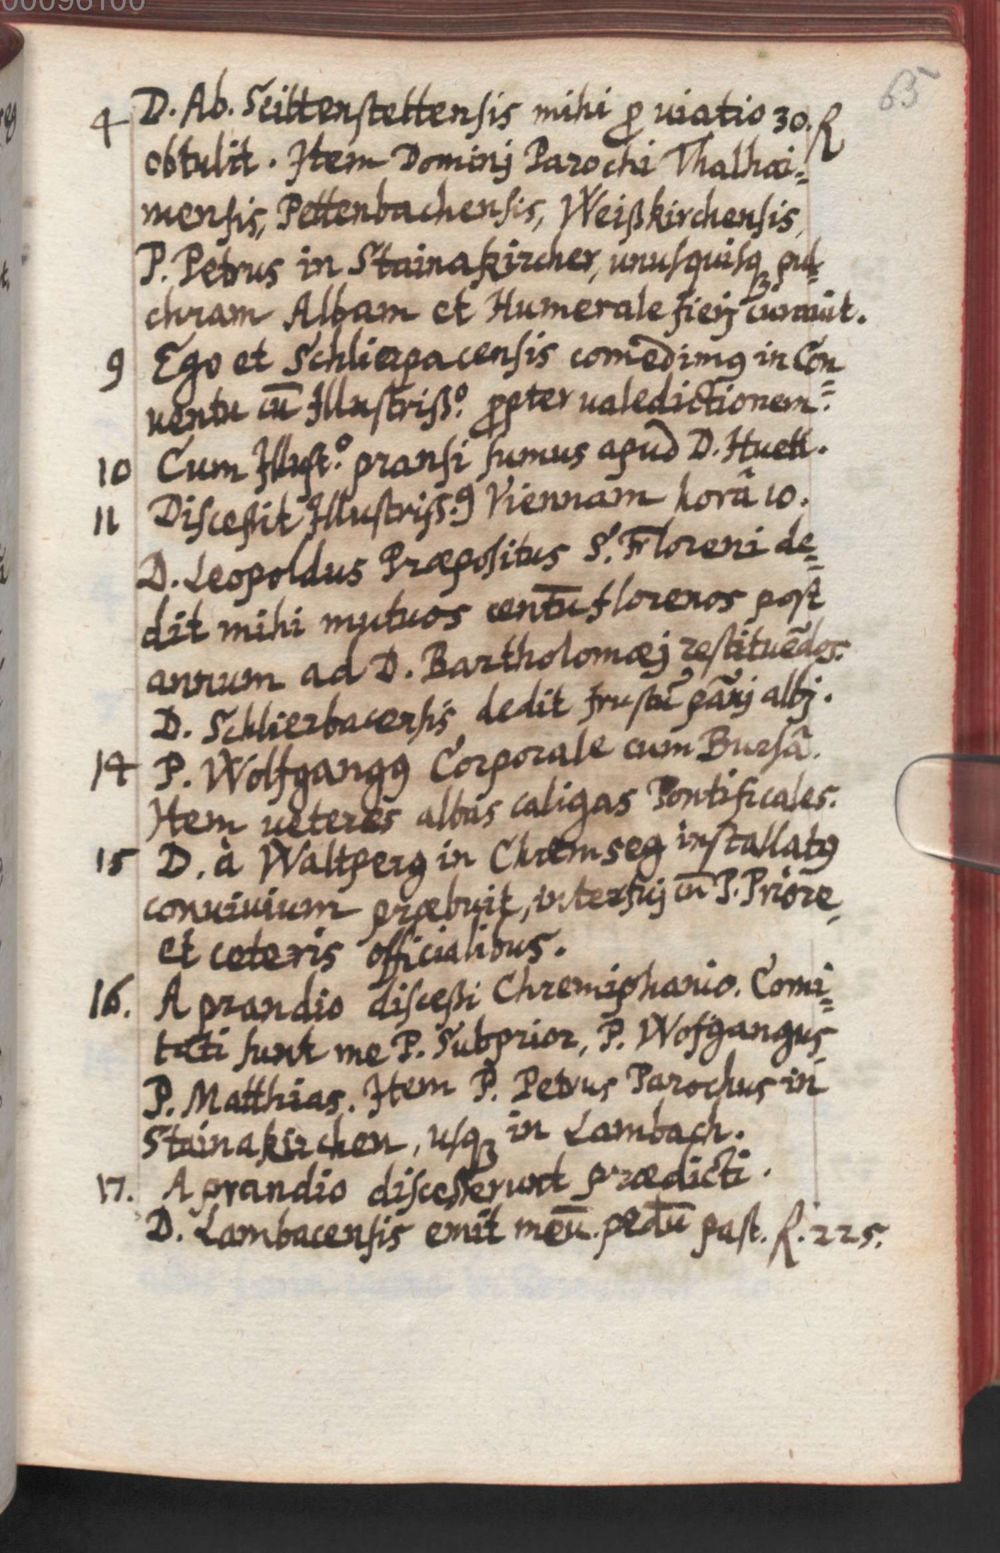 00096100
65
4 D. Ab. Seittenstettensis mihi ꝓ uiatio 30. R
obtulit. Item Dominj Parochi Thalhai=
mensis, Pettenbachensis, Weißkirchensis,
P. Petrus in Stainakircher, unusquisqꝫ pul=
chram Albam et Humerale fierj curauit.
9 Ego et Schlierpacensis comedimꝯ in Con=
uentu cū Illustriss.º ꝓpter ualedictionem.
10 Cum Illust.º pransi sumus apud D. Huett.
11 Discessit Illustriss.ꝯ Viennam horâ 10.
D. Leopoldus Præpositus S. Floreni de=
dit mihi mutuos centū florenos post
annum ad D. Bartholomæj restituēdos.
D. Schlierbacensis dedit frustū pānj albj.
14 P. Wolfgangꝯ Corporale cum Bursâ.
Item ueteres albas caligas Pontificales.
15 D. à Waltperg in Chremseg installatꝯ
conuiuium præbuit, interfuj cū P. Priore,
et ceteris officialibus.
16. A prandio discessi Chremiphanio. Comi=
tati sunt me P. Subprior, P. Wofgangus,
P. Matthias. Item P. Petrus Parochus in
Stainakirchen, usqꝫ in Lambach.
17. A prandio discesserunt prædicti.
D. Lambacensis emit meū pedū past. R. 225.